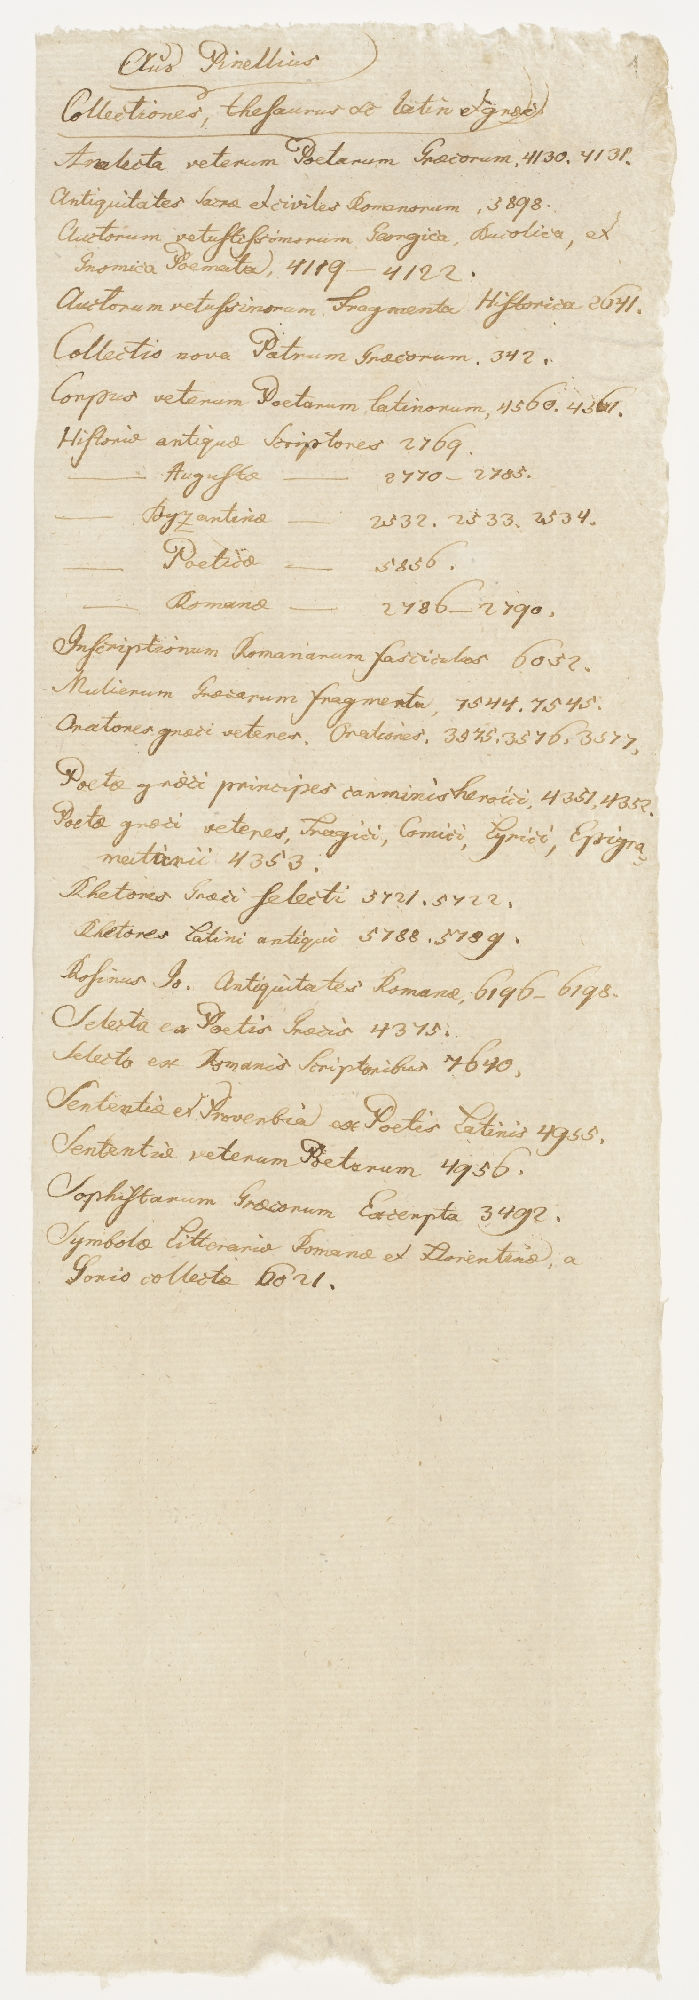 Aus Pinellius
Collectiones, thesaurus &c latin et græci
Analecta veterum Poetarum Græcorum, 4130. 4131.
Antiquitates sacræ et civiles Romanorum, 3898.
Auctorum vetustissimorum Georgica, Bucolica, et
Gnomica Poemata, 4119 — 4122.
Auctorum vetussimorum Fragmenta Historica 2641.
Collectio nova Patrum Græcorum. 342.
Corpus veterum Poetarum latinorum, 4560. 4561.
Historiæ antiquæ Scriptores 2769.
— Augustæ — 2770 – 2785.
— Byzantinæ — 2532. 2533. 2534.
— Poeticæ — 5856.
— Romanæ — 2786 — 2790.
Inscriptionum Romanarum fasciculus 6052.
Mulierum Græcarum fragmenta, 7544. 7545.
Oratores græci veteres. Orationes. 3575. 3576. 3577.
Poetæ græci principes carminis heroici, 4351, 4352.
Poetæ græci veteres, Tragici, Comici, Lyrici, Epigra-
matarii 4353.
Rhetores Græci selecti 5721. 5722.
Rhetores Latini antiqui 5788. 5789.
Rosinus Jo. Antiquitates Romanæ, 6196 – 6198.
Selecta ex Poetis Græcis 4375.
Selecta ex Romanis Scriptoribus 7640.
Sententiæ et Proverbia ex Poetis Latinis 4955.
Sententiæ veterum Poetarum 4956.
Sophistarum Græcorum Excerpta 3492.
Symbolæ Litterariæ Romanæ et Florentinæ, a
Gorio collectæ 6021.